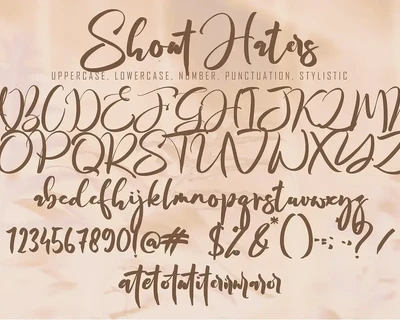 Shout Haters
UPPERCASE. LOWERCASE. NUMBER. PUNCTUATION. STYLISTIC
ABCDEFGHIJKLMN
OPQRSTUVWXYZ
abcdefghijklmnopqrstuvwxyz
1234567890!@# $%&*()-=:;-?/